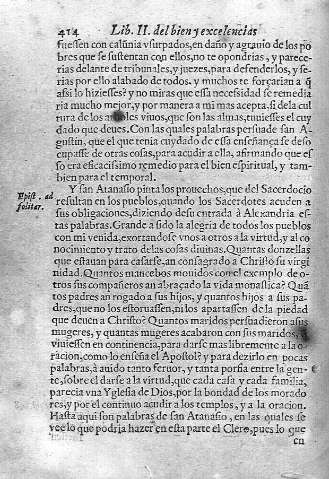 414 Lib. II. del bien y excelencias
fuessen con calūnia vsurpados, en daño y agrauio de los po
bres que se sustentan con ellos, no te opondrias, y parece-
rias delante de tribunales, y juezes, para defenderlos, y se-
rias por ello alabado de todos, y muchos te forçarian a q̃
assi lo hiziesses? y no miras que essa necessidad se remedia
ria mucho mejor, y por manera a mi mas acepta, si de la cul
tura de los arboles viuos, que son las almas, tuuiesses el cuy
dado que deues. Con las quales palabras persuade san A-
gustin, que el que tenia cuydado de essa enseñança se deso
cupasse de otras cosas, para acudir a ella, afirmando que es-
so era eficacissimo remedio para el bien espiritual, y tam-
bien para el temporal.
Y san Atanasio pinta los prouechos, que del Sacerdocio
Epist. ad
resultan en los pueblos, quando los Sacerdotes acuden a
sus obligaciones, diziendo de su entrada à Alexandria es-
tas palabras. Grande à sido la alegria de todos los pueblos
con mi venida, exortandose vnos a otros a la virtud, y al co
nocimiento y trato de las cosas diuinas. Quantas donzellas
que estauan para casarse, an consagrado a Christo su virgi
nidad. Quantos mancebos mouidos con el exemplo de o-
tros sus compañeros an abraçado la vida monastica? Quā
tos padres an rogado a sus hijos, y quantos hijos a sus pa-
dres, que no los estoruassen, ni los apartassen de la piedad
que deuen a Christo? Quantos maridos persuadieron a sus
mugeres, y quantas mugeres acabaron con sus maridos,
viuiessen en continencia, para darse mas libremente a la o-
racion, como lo enseña el Apostol? y para dezirlo en pocas
palabras, à auido tanto feruor, y tanta porfia entre la gen-
te, sobre el darse a la virtud, que cada casa y cada familia,
parecia vna Yglesia de Dios, por la bondad de los morado
res, y por el continuo acudir a los templos, y a la oracion.
Hasta aqui son palabras de san Atanasio, en las quales se
vee lo que podria hazer en esta parte el Clero, pues lo que
en